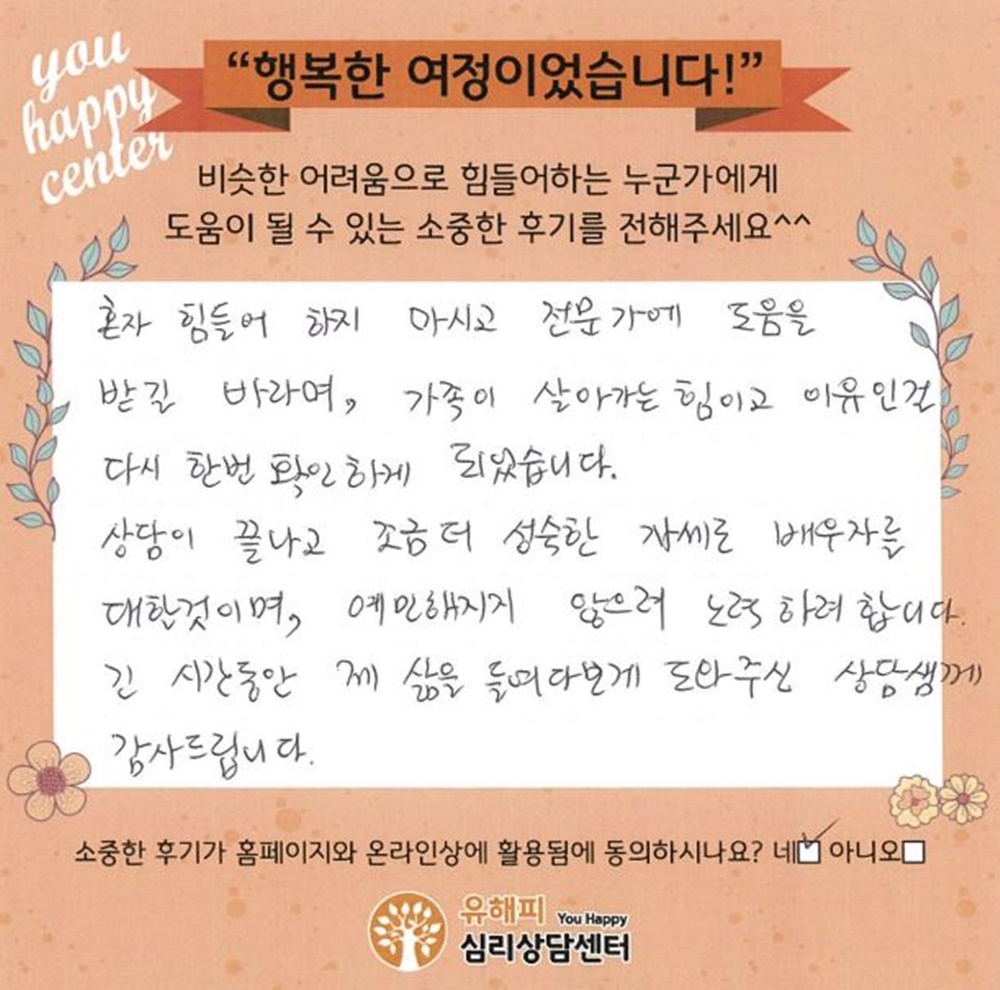 you
happy
center
“행복한 여정이었습니다!”
비슷한 어려움으로 힘들어하는 누군가에게
도움이 될 수 있는 소중한 후기를 전해주세요^^
혼자 힘들어 하지 마시고 전문가에 도움을
받길 바라며, 가족이 살아가는 힘이고 이유인걸
다시 한번 확인하게 되었습니다.
상담이 끝나고 조금 더 성숙한 자세로 배우자를
대할것이며, 예민해지지 않으려 노력 하려 합니다.
긴 시간동안 제 삶을 들여다보게 도와주신 상담샘께
감사드립니다.
소중한 후기가 홈페이지와 온라인상에 활용됨에 동의하시나요? 네 아니오
유해피 You Happy
심리상담센터